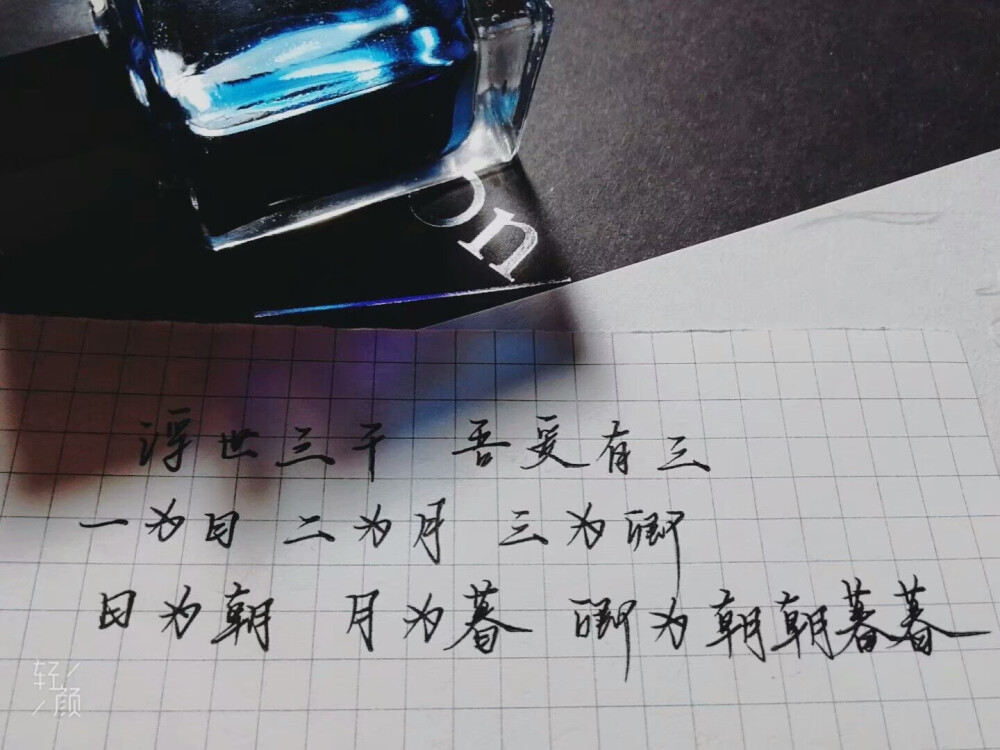 on
浮世三千 吾爱有三
一为日 二为月 三为卿
日为朝 月为暮 卿为朝朝暮暮
轻
颜